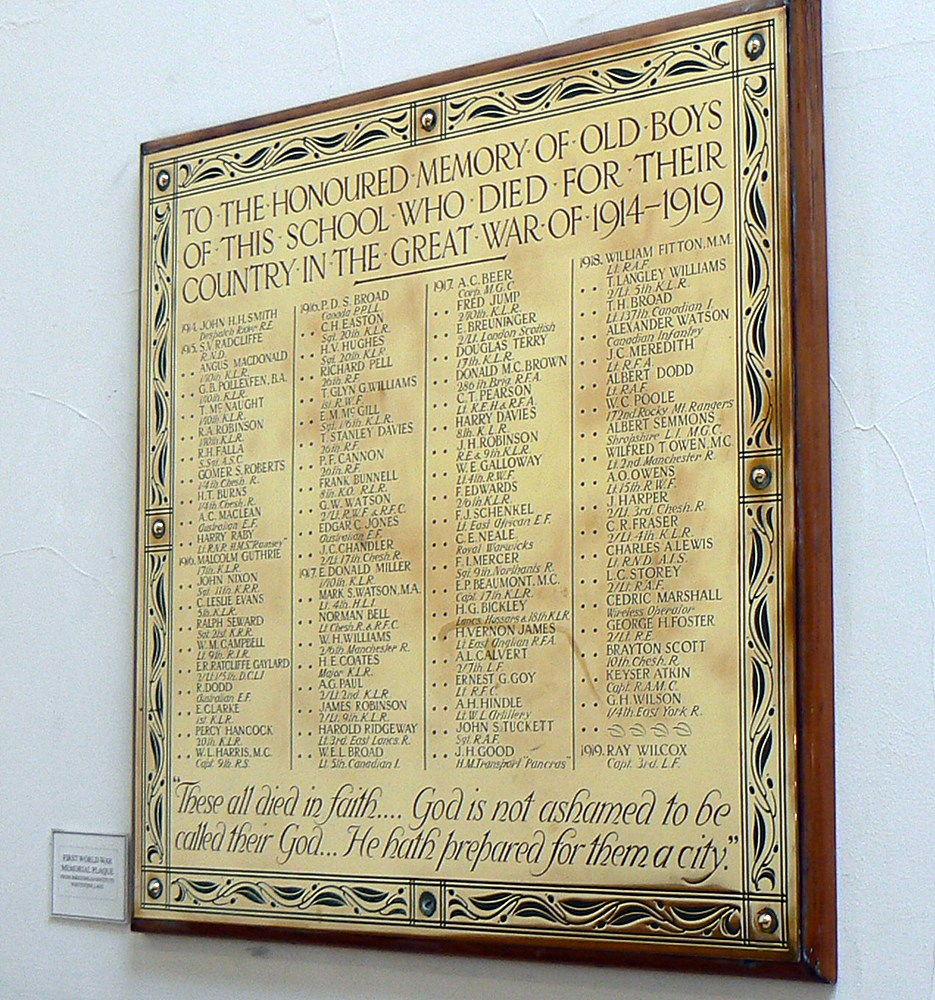 TO·THE·HONOURED·MEMORY·OF·OLD·BOYS
OF·THIS·SCHOOL·WHO·DIED·FOR·THEIR
COUNTRY·IN·THE·GREAT·WAR·OF·1914-1919
1914. JOHN H.H.SMITH
Despatch Rider R.E.
1915. S.V. RADCLIFFE
R.N.D.
" " ANGUS MACDONALD
1/10th K.L.R.
" " G.B. POLLEXFEN, B.A.
1/10th K.L.R.
" " T. McNAUGHT
1/10th K.L.R.
" " R.A. ROBINSON
1/10th K.L.R.
" " R.H. FALLA
S.Sgt. A.S.C.
" " GOMER S. ROBERTS
1/4th Chesh. R.
" " H.T. BURNS
1/4th Chesh. R.
" " A.C. MACLEAN
Australian E.F.
" " HARRY RABY
Lt. R.N.R. H.M.S. "Ramsey"
1916. MALCOLM GUTHRIE
17th K.L.R.
" " JOHN NIXON
Sgt. 11th K.R.R.
" " C. LESLIE EVANS
5th K.L.R.
" " RALPH SEWARD
Sgt. 21st. K.R.R.
" " W.M. CAMPBELL
Lt. 9th. R.I.R.
" " E.R. RATCLIFFE GAYLARD
2/Lt. 1/5th. D.C.L.I
" " R. DODD
Australian E.F.
" " E. CLARKE
1st. K.L.R.
" " PERCY HANCOCK
20th. K.L.R.
" " W.L. HARRIS, M.C.
Capt. 9th. R.S.
1916. P.D.S. BROAD
Canada P.P.L.I.
" " C.H. EASTON
Sgt. 20th. K.L.R.
" " H.V. HUGHES
Sgt. 20th. K.L.R.
" " RICHARD PELL
26th. R.F.
" " T. GLYN G. WILLIAMS
1st. R.W.F.
" " E.M. McGILL
Sgt. 1/6th K.L.R.
" " T. STANLEY DAVIES
26th. R.F.
" " P.F. CANNON
26th. R.F.
" " FRANK BUNNELL
8th. K.O. R.L.R.
" " G.W. WATSON
2/Lt. R.W.F. & R.F.C.
" " EDGAR C. JONES
Australian E.F.
" " J.C. CHANDLER
2/Lt 17th Chesh. R.
1917. E. DONALD MILLER
1/10th K.L.R.
" " MARK S. WATSON, M.A.
Lt. 4th. H.L.I.
" " NORMAN BELL
Lt Chesh. R. & R.F.C.
" " W.H. WILLIAMS
2/6th Manchester R.
" " H.E. COATES
Major K.L.R.
" " A.G. PAUL
2/Lt. 2nd K.L.R.
" " JAMES ROBINSON
2/Lt. 9th. K.L.R.
" " HAROLD RIDGEWAY
Lt. 3rd. East Lancs. R.
" " W.E.L. BROAD
Lt. 5th. Canadian I.
1917. A.C. BEER
Corp. M.G.C.
" " FRED JUMP
2/10th. K.L.R.
" " E. BREUNINGER
2/Lt. London Scottish
" " DOUGLAS TERRY
17th. K.L.R.
" " DONALD M.C. BROWN
286th. Brig. R.F.A.
" " C.T. PEARSON
Lt. K.E.H. & R.F.A.
" " HARRY DAVIES
8th. K.L.R.
" " J.H. ROBINSON
R.E. & 9th K.L.R.
" " W.E. GALLOWAY
Lt. 4th. R.W.F.
" " F. EDWARDS
2/6th K.L.R.
" " F.J. SCHENKEL
Lt. East African E.F.
" " C.E. NEALE
Royal Warwicks
" " F.I. MERCER
Sgt. 9th. Northants R.
" " E.P. BEAUMONT, M.C.
Capt. 17th K.L.R.
" " H.G. BICKLEY
Lancs. Hussars & 18th K.L.R
" " H. VERNON JAMES
Lt. East Anglian R.F.A.
" " A.L. CALVERT
2/7th. L.F.
" " ERNEST G. GOY
Lt. R.F.C.
" " A.H. HINDLE
Lt. W.L. Artillery
" " JOHN S. TUCKETT
Sgt. R.A.F.
" " J.H. GOOD
H.M. Transport "Pancras"
1918. WILLIAM FITTON, M.M.
Lt. R.A.F.
" " T. LANGLEY WILLIAMS
2/Lt. 5th. K.L.R.
" " T.H. BROAD
Lt 137th Canadian I.
" " ALEXANDER WATSON
Canadian Infantry
" " J.C. MEREDITH
Lt. R.F.A.
" " ALBERT DODD
Lt. R.A.F.
" " W.C. POOLE
172nd Rocky Mt. Rangers
" " ALBERT SEMMONS
Shropshire L.I. M.G.C.
" " WILFRED T. OWEN, M.C
Lt. 2nd. Manchester R.
" " A.O. OWENS
Lt. 15th. R.W.F.
" " J. HARPER
2/Lt. 3rd. Chesh. R.
" " C.R. FRASER
2/Lt. 4th. K.L.R.
" " CHARLES A. LEWIS
Lt. R.N.D. A.I.S.
" " L.C. STOREY
2/Lt. R.A.F.
" " CEDRIC MARSHALL
Wireless Operator
" " GEORGE H. FOSTER
2/Lt. R.E.
" " BRAYTON SCOTT
10th. Chesh. R.
" " KEYSER ATKIN
Capt. R.A.M.C.
" " G.H. WILSON
1/4th East York R.
1919. RAY WILCOX
Capt. 3rd. L.F.
"These all died in faith.... God is not ashamed to be
called their God... He hath prepared for them a city."
FIRST WORLD WAR
MEMORIAL PLAQUE